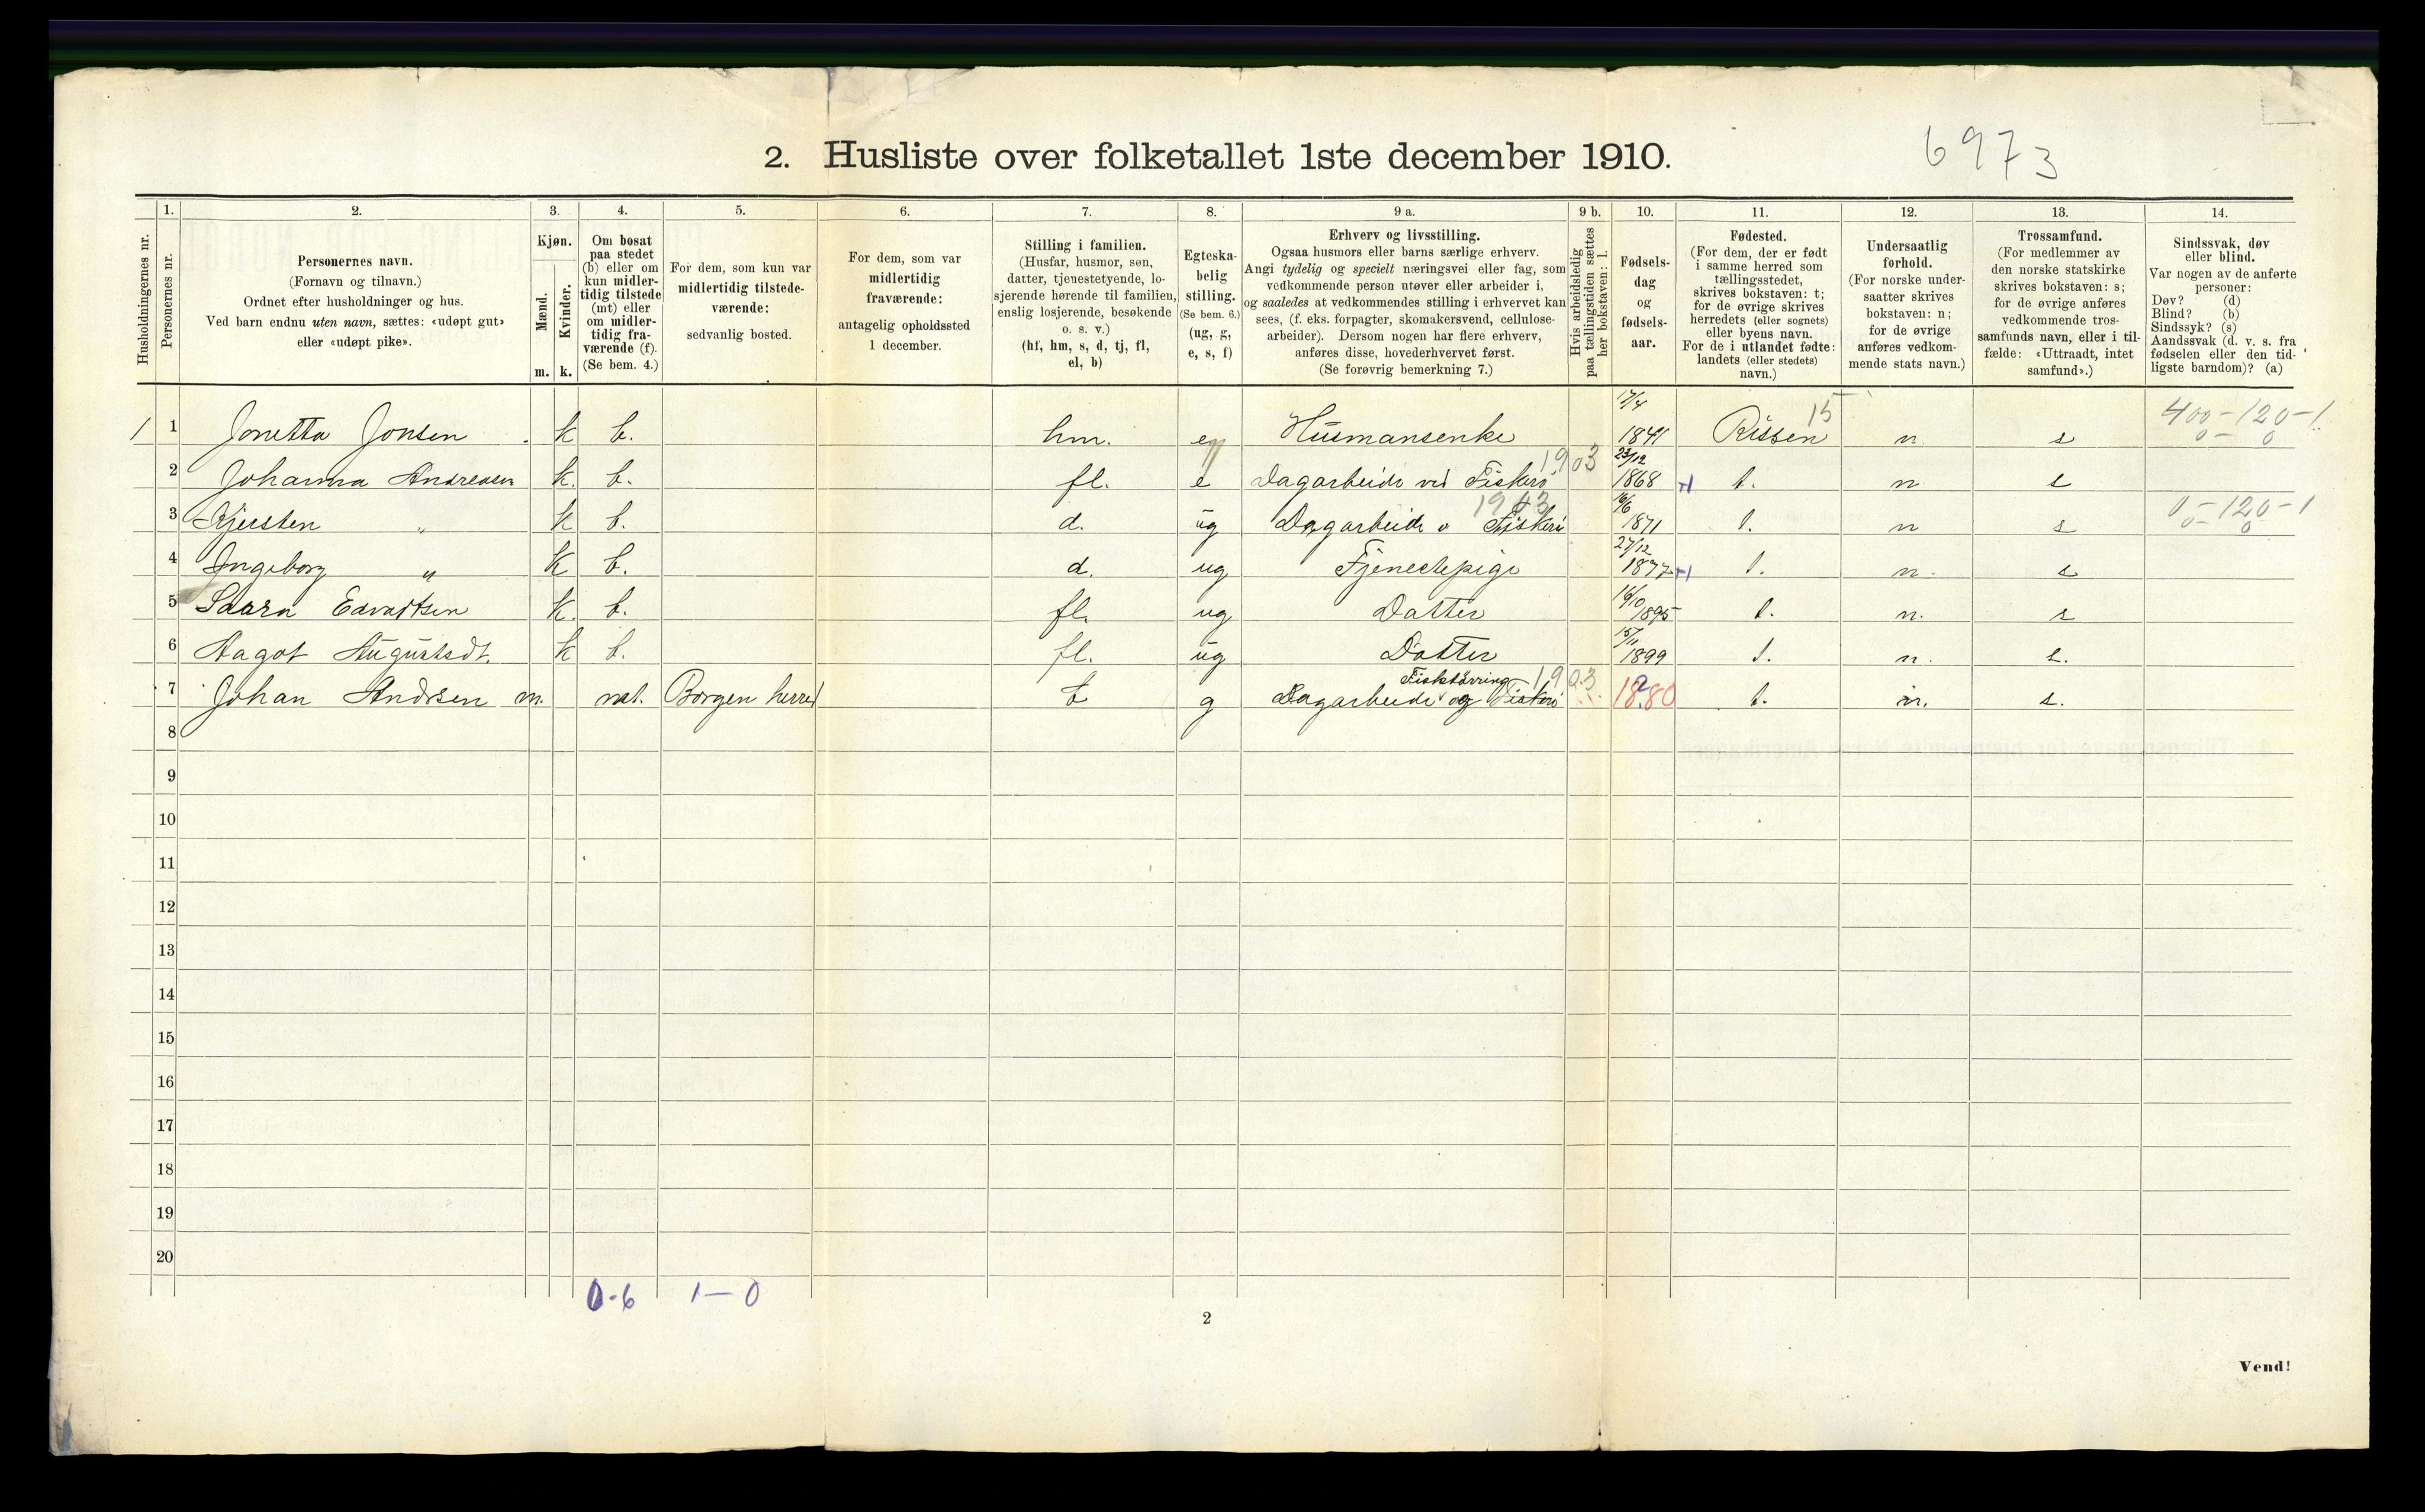 2. Husliste over folketallet 1ste december 1910.
6973
1. 2. 3. 4. 5. 6. 7. 8. 9 a. 9 b. 10. 11. 12. 13. 14.
Husholdningernes nr.
Personernes nr.
Personernes navn.
(Fornavn og tilnavn.)
Ordnet efter husholdninger og hus.
Ved barn endnu uten navn, sættes: «udøpt gut»
eller «udøpt pike».
Kjøn.
Mænd.
Kvinder.
m. k.
Om bosat
paa stedet
(b) eller om
kun midler-
tidig tilstede
(mt) eller
om midler-
tidig fra-
værende (f).
(Se bem. 4.)
For dem, som kun var
midlertidig tilstede-
værende:
sedvanlig bosted.
For dem, som var
midlertidig
fraværende:
antagelig opholdssted
1 december.
Stilling i familien.
(Husfar, husmor, søn,
datter, tjenestetyende, lo-
sjerende hørende til familien,
enslig losjerende, besøkende
o. s. v.)
(hf, hm, s, d, tj, fl,
el, b)
Egteska-
belig
stilling.
(Se bem. 6.)
(ug, g,
e, s, f)
Erhverv og livsstilling.
Ogsaa husmors eller barns særlige erhverv.
Angi tydelig og specielt næringsvei eller fag, som
vedkommende person utøver eller arbeider i,
og saaledes at vedkommendes stilling i erhvervet kan
sees, (f. eks. forpagter, skomakersvend, cellulose-
arbeider). Dersom nogen har flere erhverv,
anføres disse, hovederhvervet først.
(Se forøvrig bemerkning 7.)
Hvis arbeidsledig
paa tællingstiden sættes
her bokstaven: l.
Fødsels-
dag
og
fødsels-
aar.
Fødested.
(For dem, der er født
i samme herred som
tællingsstedet,
skrives bokstaven: t;
for de øvrige skrives
herredets (eller sognets)
eller byens navn.
For de i utlandet fødte:
landets (eller stedets)
navn.)
Undersaatlig
forhold.
(For norske under-
saatter skrives
bokstaven: n;
for de øvrige
anføres vedkom-
mende stats navn.)
Trossamfund.
(For medlemmer av
den norske statskirke
skrives bokstaven: s;
for de øvrige anføres
vedkommende tros-
samfunds navn, eller i til-
fælde: «Uttraadt, intet
samfund».)
Sindssvak, døv
eller blind.
Var nogen av de anførte
personer:
Døv? (d)
Blind? (b)
Sindssyk? (s)
Aandssvak (d. v. s. fra
fødselen eller den tid-
ligste barndom)? (a)
15 400-120-1
0- 0
1 1 Jonetta Jonsen k b. hm. e Husmansenke 17/4 1841 Rissen n s
1903
2 Johanna Andreasen k. b. fl. e Dagarbeide ved Fiskeri 23/12 1868 t. n s
1903 0-120-1
0- 0
3 Kjersten " k b. d. ug Dagarbeide v Fiskeri 16/6 1871 t. n s
4 Ingeborg " k b. d. ug Tjenestepige 27/12 1877 t. n. s
5 Saara Edvartsen k. b. fl. ug Datter 16/10 1895 t. n. s
6 Aagot Augustsdt. k b. fl. ug Datter 15/11 1899 t. n. s.
Fisktørring 1903
7 Johan Andrsen m. mt. Borgen herred b g Dagarbeide og Fiskeri 1880 t. n. s.
8
9
10
11
12
13
14
15
16
17
18
19
20
0-6 1-0
2
Vend!